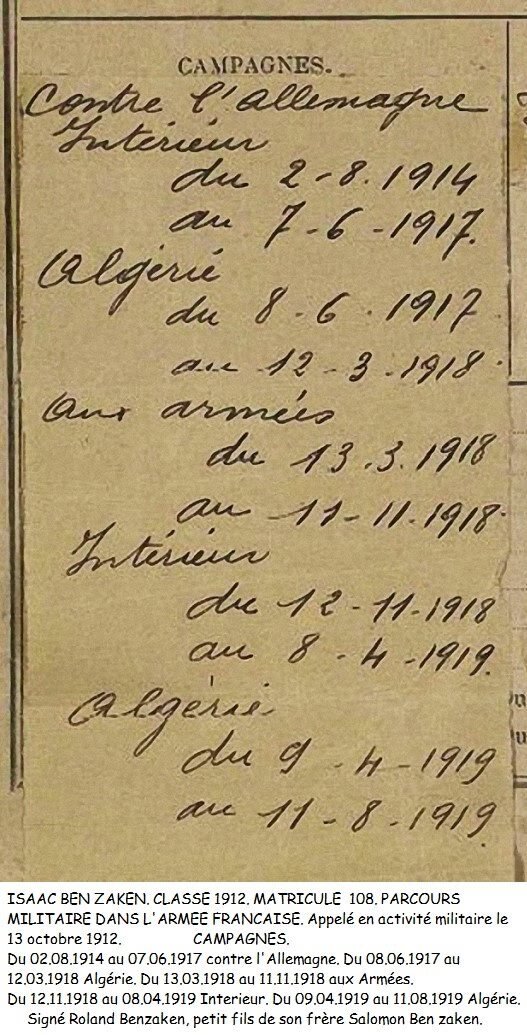 CAMPAGNES.
Contre l'allemagne
Intérieur
du 2-8.1914
au 7-6-1917.
Algérie
du 8-6.1917
au 12-3-1918.
Aux armées
du 13.3.1918
au 11-11.1918.
Intérieur
du 12-11-1918
au 8-4-1919.
Algérie
du 9-4-1919
au 11-8-1919.
ISAAC BEN ZAKEN. CLASSE 1912. MATRICULE 108. PARCOURS
MILITAIRE DANS L'ARMEE FRANCAISE. Appelé en activité militaire le
13 octobre 1912. CAMPAGNES.
Du 02.08.1914 au 07.06.1917 contre l'Allemagne. Du 08.06.1917 au
12.03.1918 Algérie. Du 13.03.1918 au 11.11.1918 aux Armées.
Du 12.11.1918 au 08.04.1919 Interieur. Du 09.04.1919 au 11.08.1919 Algérie.
Signé Roland Benzaken, petit fils de son frère Salomon Ben zaken.